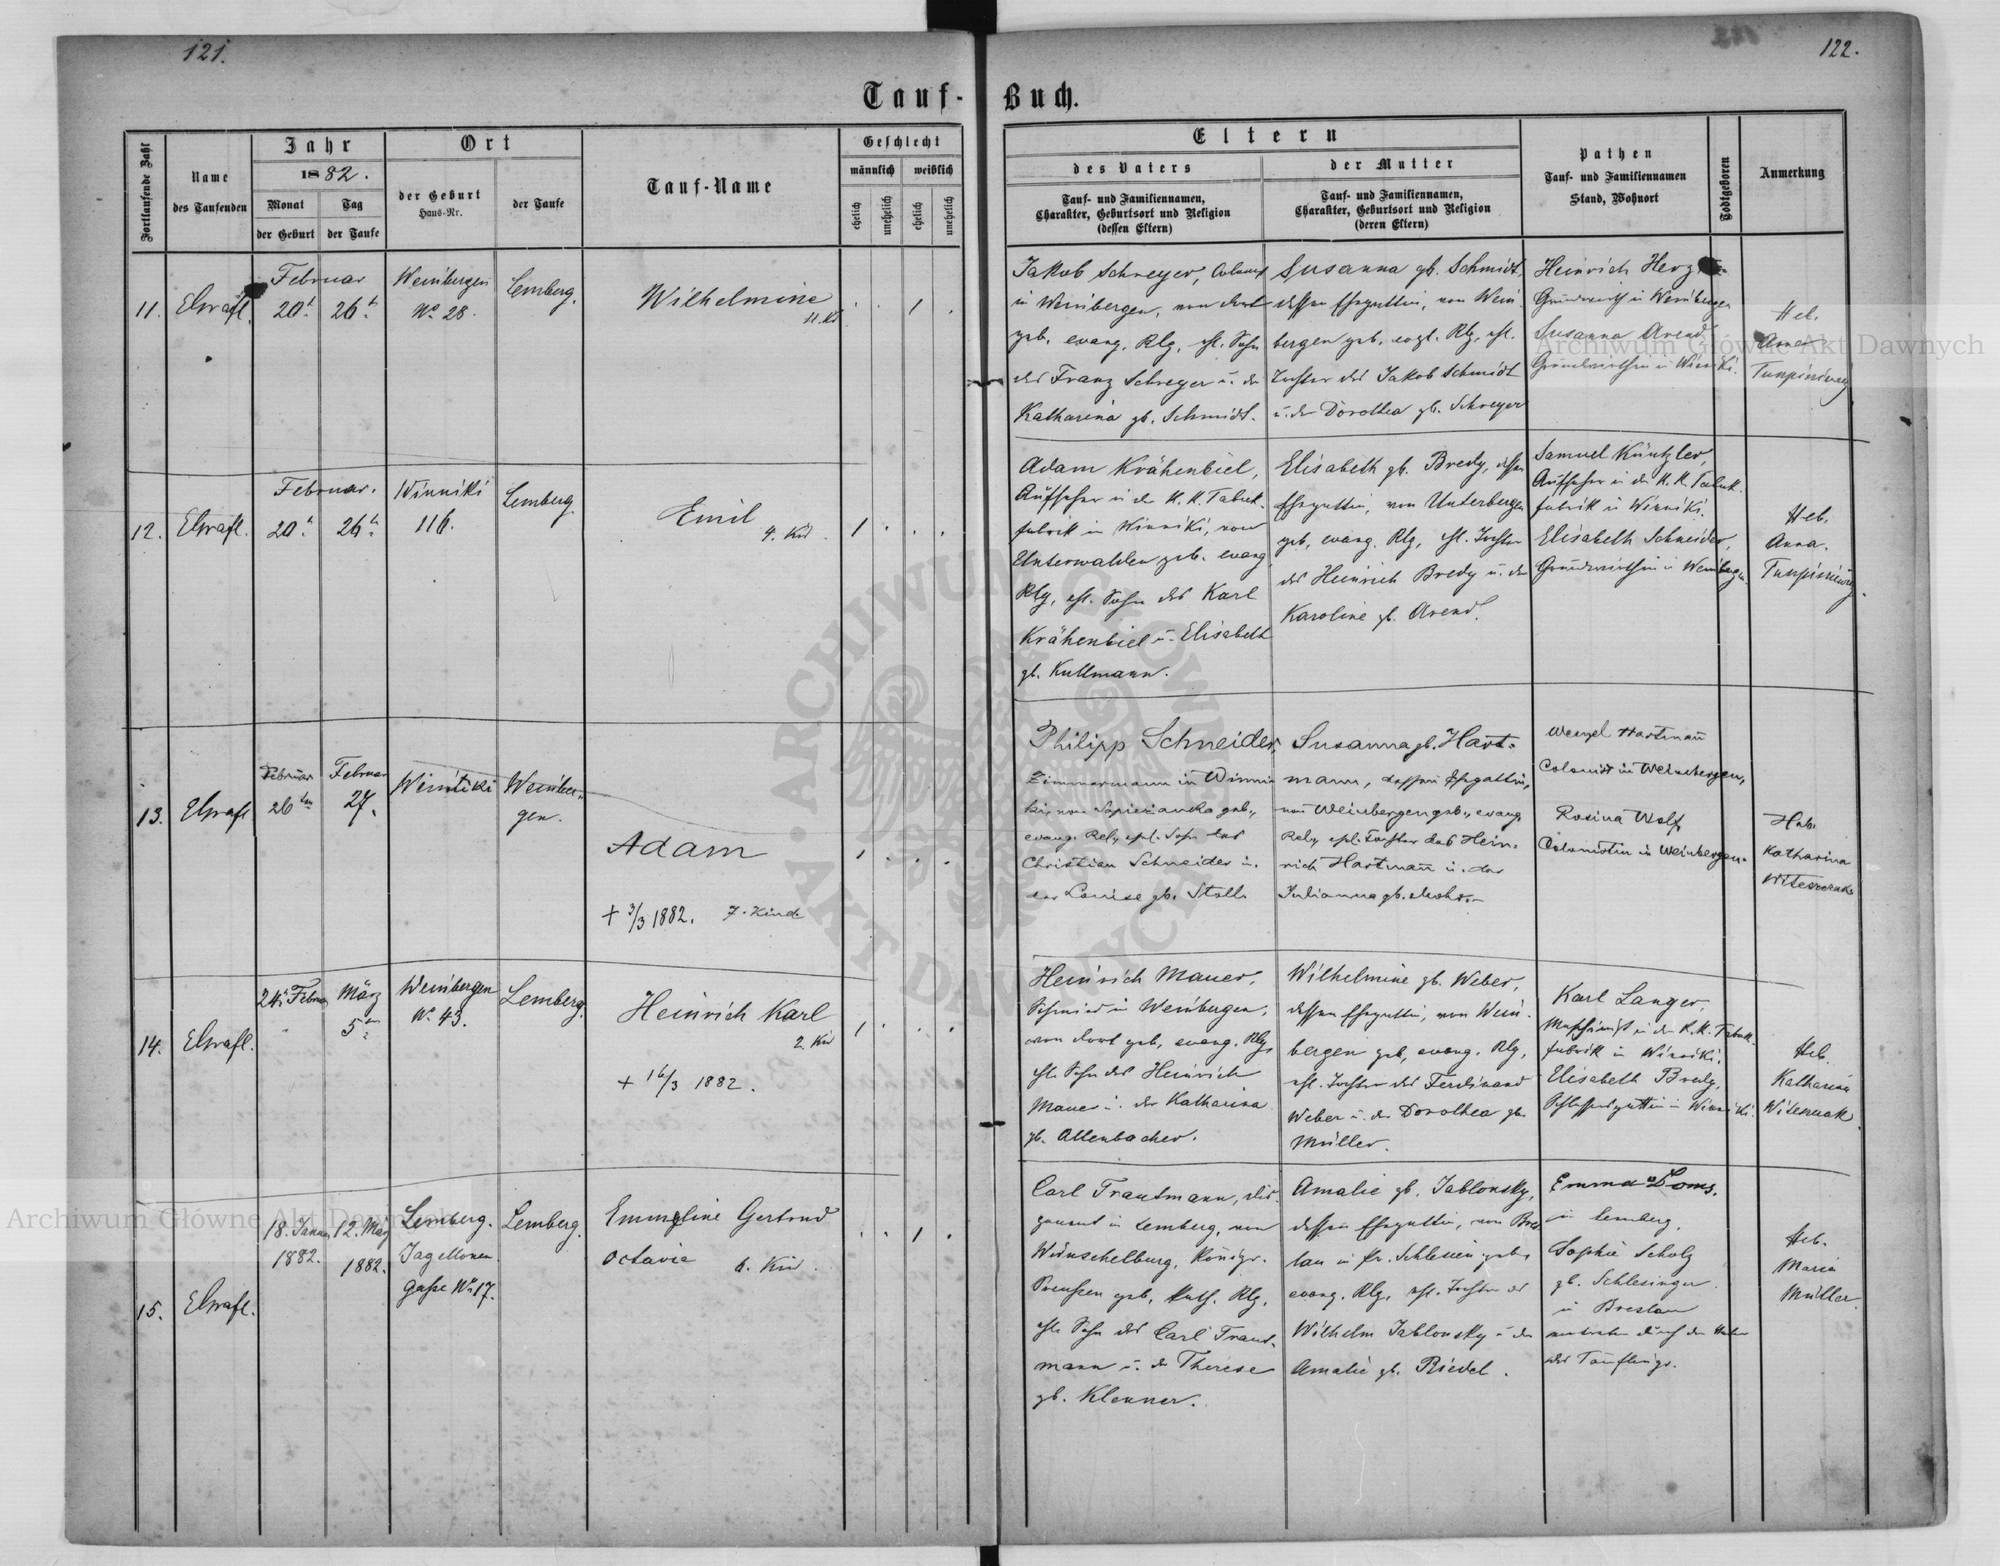 121.
122.
Tauf-Buch.
Fortlaufende Zahl
Name
des Taufenden
Jahr
1882.
Monat
der Geburt
Tag
der Taufe
Ort
der Geburt
Haus-Nr.
der Taufe
Tauf-Name
Geschlecht
männlich
weiblich
ehelich
unehelich
ehelich
unehelich
Eltern
des Vaters
Tauf- und Familiennamen,
Charakter, Geburtsort und Religion
(dessen Eltern)
der Mutter
Tauf- und Familiennamen,
Charakter, Geburtsort und Religion
(deren Eltern)
Pathen
Tauf- und Familiennamen
Stand, Wohnort
Todtgeboren
Anmerkung
11.
Februar
20t
26t
Weinbergen
No 28.
Lemberg.
Wilhelmine
11. Kd
1
Jakob Schreyer,
in Weinbergen, von dort
geb. evang. Rlg. ehl. Sohn
des Franz Schreyer u. der
Katharina gb. Schmidt.
Susanna gb. Schmidt,
dessen Ehegattin, von Wein-
bergen geb. evgl. Rlg. ehl.
Tochter des Jakob Schmidt
u. der Dorothea gb. Schreyer
Heinrich Herz
Grundwirth in Weinbergen
Susanna Arend,
Grundwirthin in Winniki.
Heb.
Anna
12.
Februar.
20t
26t
Winniki
116.
Lemberg
Emil
4. Kid.
1
Adam Krähenbiel,
Aufseher in der K. K. Tabak-
fabrik in Winniki, von
Unterwalden geb. evang.
Rlg, ehl. Sohn des Karl
Krähenbiel u. Elisabeth
gb. Kullmann.
Elisabeth gb. Bredy, dessen
Ehegattin, von Unterbergen
geb, evang. Rlg, ehl. Tochter
des Heinrich Bredy u. der
Karoline gb. Arend.
Samuel Küntzler,
Aufseher in der K. K. Tabak-
fabrik in Winniki.
Elisabeth Schneider,
Grundwirthin in Weinbergen.
Heb.
Anna.
13.
Februar
26ten
Februar
27.
Weinbergen.
Adam
+ 3/3 1882. 7. Kind
1
Philipp Schneider,
Zimmermann in Winni-
ki, von Sapiezanka geb.,
evang. Rel., ehl. Sohn des
Christian Schneider u.
der Louise gb. Stoll.
Susanna gb. Hart-
mann, dessen Ehegattin,
von Weinbergen geb., evang.
Rel., ehl. Tochter des Hein-
rich Hartmann u. der
Julianna gb.
Wenzel Hartmann
Colonist in Weinbergen,
Rosina Wolf,
Colonistin in Weinbergen.
Heb.
Katharina
14.
24t Februar
März
5ten
Weinbergen
No 43.
Lemberg.
Heinrich Karl
2. Kid
+ 16/3 1882.
1
Heinrich Mauer,
Schmied in Weinbergen,
von dort geb, evang. Rlg,
ehl. Sohn des Heinrich
Mauer u. der Katharina
gb. Allenbacher.
Wilhelmine gb. Weber,
dessen Ehegattin, von Wein-
bergen geb, evang. Rlg,
ehl. Tochter des Ferdinand
Weber u. der Dorothea gb.
Müller.
Karl Langer,
Maschinist in der K. K. Tabak-
fabrik in Winniki.
Elisabeth Bredy,
Schlossersgattin in Winniki.
Heb.
Katharina
15.
18. Januar
1882.
12. März
1882.
Lemberg.
Jagellonen
Gasse No 17.
Lemberg.
Emmeline Gertrud
Octavie 6. Kid.
1
Carl Trautmann,
in Lemberg, von
Wünschelburg, Königr.
Preußen geb, kath. Rlg,
ehl. Sohn des Carl Traut-
mann u. der Therese
gb. Klenner.
Amalie gb. Jablonsky,
dessen Ehegattin, von Bres-
lau in Pr. Schlesien geb.
evang. Rlg, ehl. Tochter des
Wilhelm Jablonsky u. der
Amalie gb. Riedel.
Emma Doms.
in Lemberg.
Sophie Scholz
gb. Schlesinger
in Breslau
vertreten durch den Vater
des Täuflings.
Heb.
Maria
Müller.
Archiwum Główne Akt Dawnych
Archiwum Główne Akt Dawnych
ARCHIWUM GŁÓWNE AKT DAWNYCH